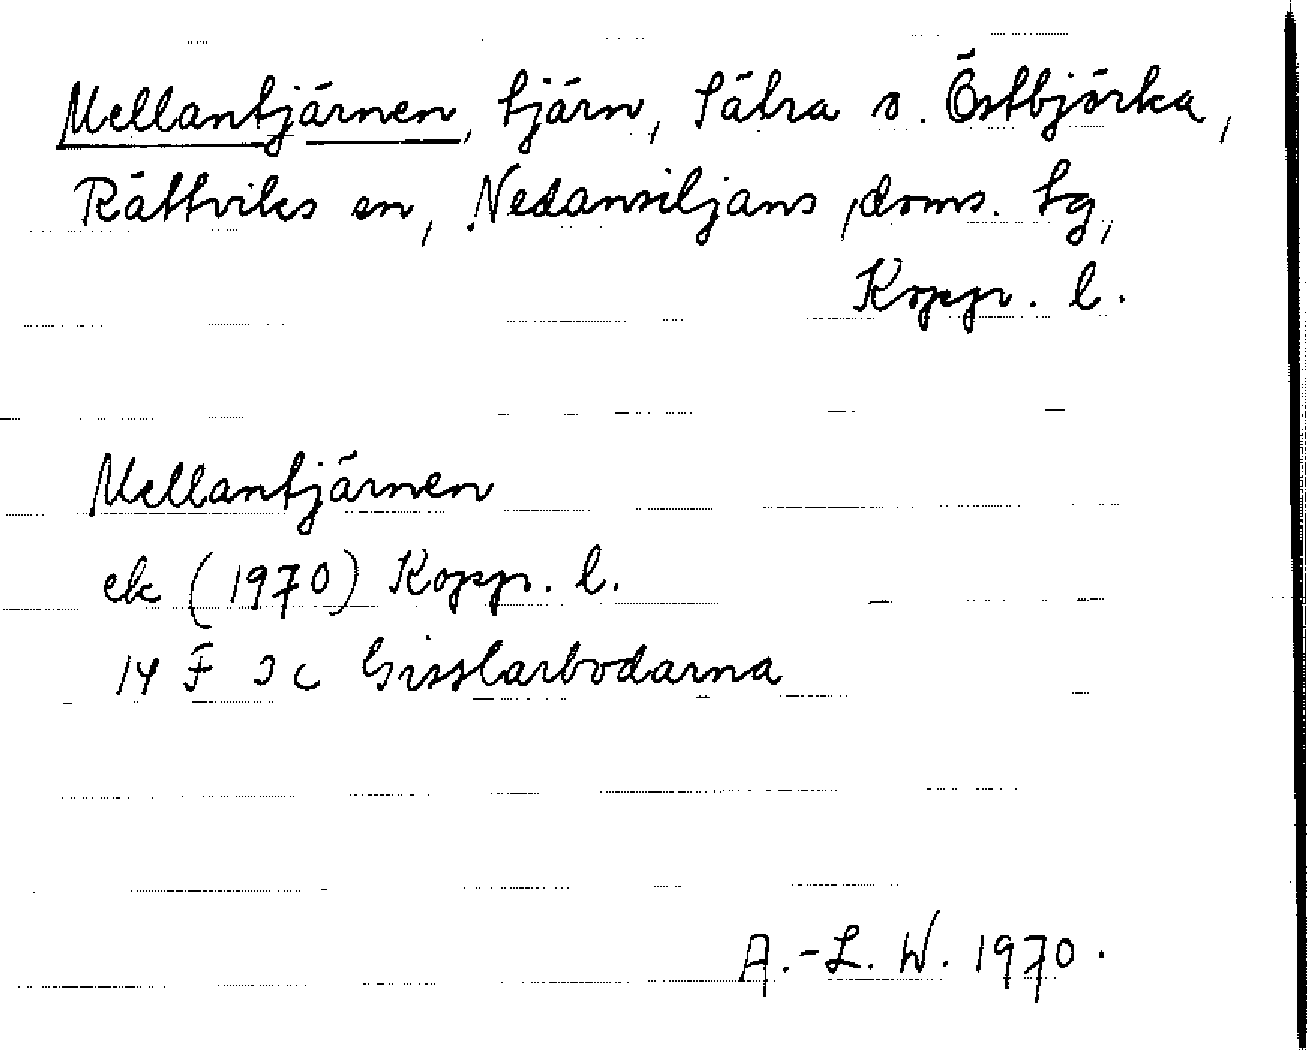 Mellantjärnen, tjärn, Sätra s. Östbjörka,
Rättviks sn, Nedansiljans doms. tg,
Kopp. l.
Mellantjärnen
ek (1970) Kopp. l.
14 F 3 c Gisslarbodarna
A.-L. W. 1970.